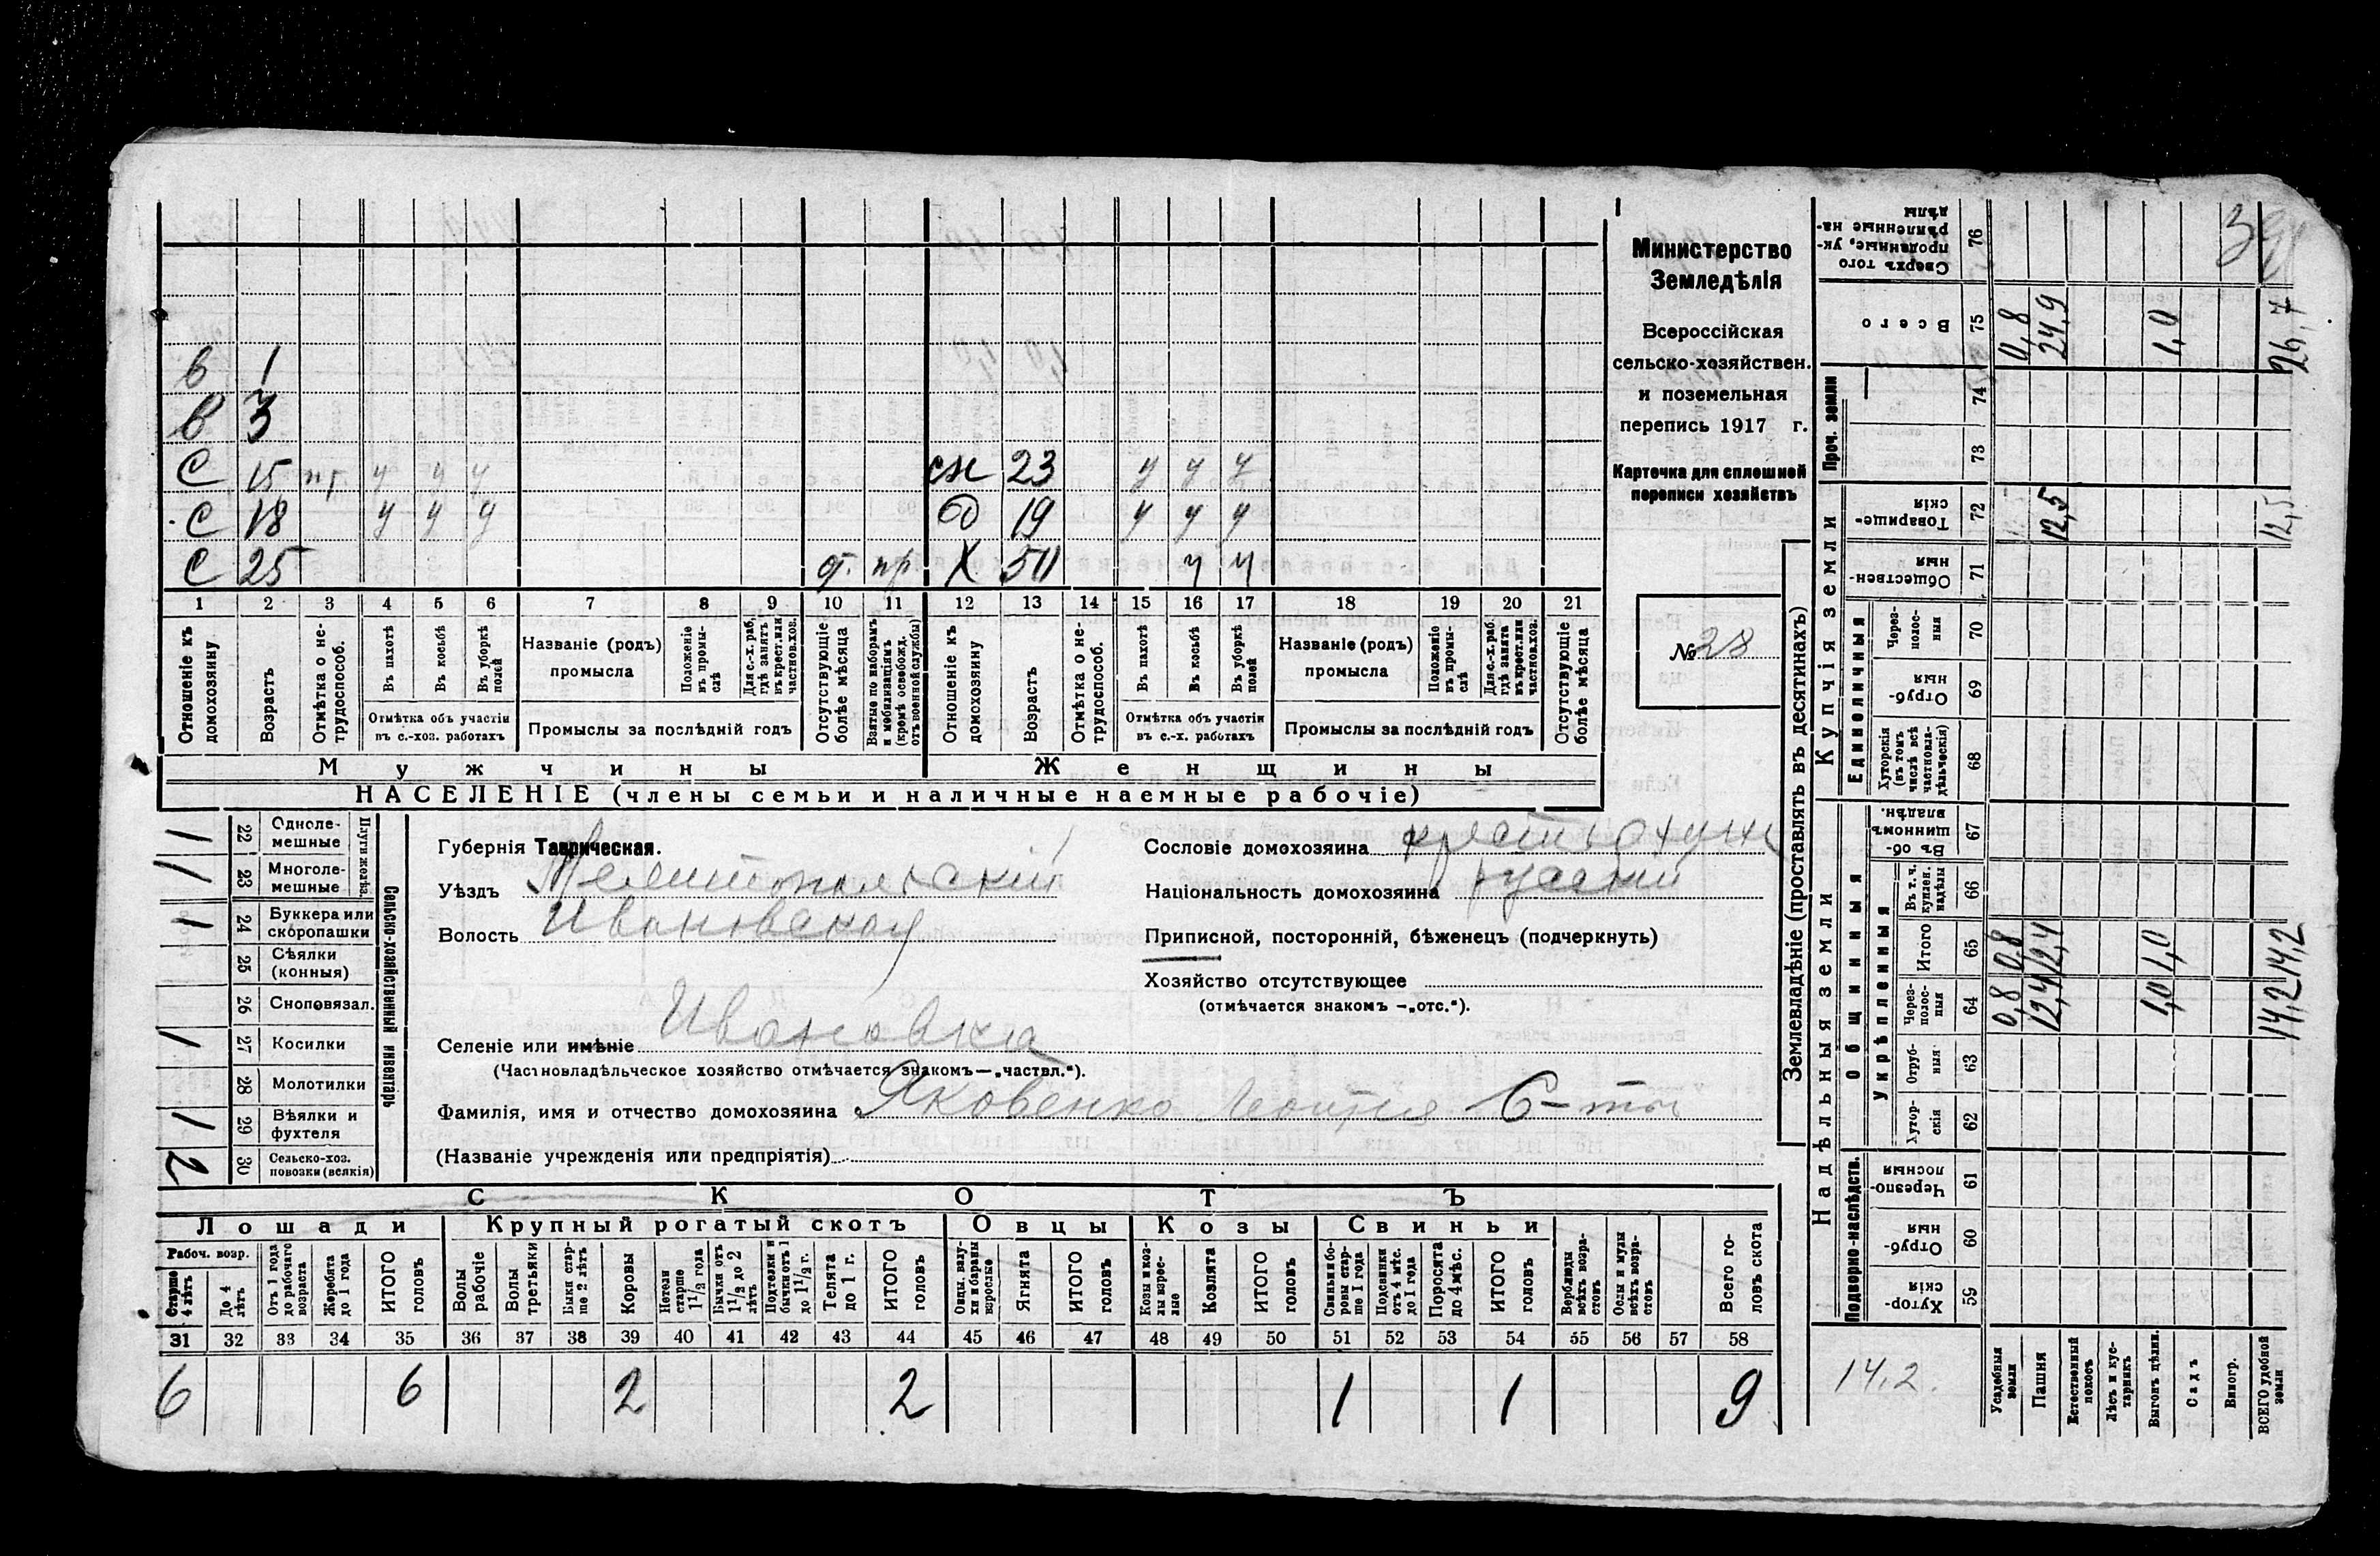 в 1
в 3
с 15 нр. у у у сн 23 у у у
с 18 у у у д 19 у у у
с 25 от. пр Х 50 ч ч
1 2 3 4 5 6 7 8 9 10 11 12 13 14 15 16 17 18 19 20 21
Отношеніе къ домохозяину
Возрастъ
Отмѣтка о не-трудоспособ.
Въ пахотѣ
Въ косьбѣ
Въ уборкѣ полей
Отмѣтка объ участіи
въ с.-хоз. работахъ
Названіе (родъ)
промысла
Положеніе въ промы-слѣ
Для с.-х. раб, гдѣ занятъ въ крест. или частнов. хоз.
Промыслы за послѣдній годъ
Отсутствующіе болѣе мѣсяца
Взятые по наборамъ и мобилизаціямъ (кромѣ освобожд. отъ военной службы)
Отношеніе къ домохозяину
Возрастъ
Отмѣтка о не-трудоспособ.
Въ пахотѣ
Въ косьбѣ
Въ уборкѣ полей
Отмѣтка объ участіи
въ с.-х. работахъ
Названіе (родъ)
промысла
Положеніе въ промы-слѣ
Для с.-х. раб. гдѣ занята въ крест. или частнов. хоз.
Промыслы за послѣдній годъ
Отсутствующіе болѣе мѣсяца
Мужчины Женщины
НАСЕЛЕНІЕ (члены семьи и наличные наемные рабочіе)
Министерство
Земледѣлія
Всероссійская
сельско-хозяйствен.
и поземельная
перепись 1917 г.
Карточка для сплошной
переписи хозяйствъ
№ 28
1 22 Одноле-мешные
1 23 Многоле-мешные
Плуги желѣз.
1 24 Буккера или скоропашки
25 Сѣялки (конныя)
26 Сноповязал.
1 27 Косилки
28 Молотилки
1 29 Вѣялки и фухтеля
2 30 Сельско-хоз. повозки (всякія)
Сельско-хозяйственный инвентарь
Губернія Таврическая.
Уѣздъ Мелитопольскій
Волость Ивановская
Селеніе или имѣніе Ивановка
(Частновладѣльческое хозяйство отмѣчается знакомъ—„частвл.“).
Фамилія, имя и отчество домохозяина Яковенко
(Названіе учрежденія или предпріятія)
Сословіе домохозяина
Національность домохозяина русскій
Приписной, посторонній, бѣженецъ (подчеркнуть)
Хозяйство отсутствующее
(отмѣчается знакомъ —„отс.“).
СКОТЪ
Лошади Крупный рогатый скотъ Овцы Козы Свиньи
Рабоч. возр.
Старше 4 лѣтъ
До 4 лѣтъ
Отъ 1 года до рабочаго возраста
Жеребята до 1 года
ИТОГО головъ
Волы рабочіе
Волы третьяки
Быки стар-ше 2 лѣтъ
Коровы
Нетели старше 1½ года
Бычки отъ 1½ до 2 лѣтъ
Подтелки и бычки отъ 1 до 1½ г.
Телята до 1 г.
ИТОГО головъ
Овцы, валу-хи и бараны взрослые
Ягнята
ИТОГО головъ
Козы и коз-лы взрос-лые
Козлята
ИТОГО головъ
Свиньи и бо-ровы стар-ше 1 года
Подсвинки отъ 4 мѣс. до 1 года
Поросята до 4 мѣс.
ИТОГО головъ
Верблюды всѣхъ возра-стовъ
Ослы и мулы всѣхъ возра-стовъ
Всего го-ловъ скота
31 32 33 34 35 36 37 38 39 40 41 42 43 44 45 46 47 48 49 50 51 52 53 54 55 56 57 58
6 6 2 2 1 1 9
Землевладѣніе (проставлять въ десятинахъ)
Надѣльныя земли Купчія земли Проч. земли
Подворно-наслѣдств. Общинныя
Укрѣпленныя Единоличныя
59 Хутор-скія
60 Отруб-ныя
61 Черезпо-лосныя
62 Хутор-скія
63 Отруб-ныя
64 Через-полос-ныя 0,8 12,4 1,0 14,2
65 Итого 0,8 12,4 1,0 14,2
66 Въ т. ч. куплен. надѣлы
67 Въ об-щинномъ владѣн.
68 Хуторскія (въ томъ числѣ всѣ частновла-дѣльческія)
69 Отруб-ныя
70 Через-полос-ныя
71 Обществен-ныя
72 Товарище-скія 12,5 12,5
73
74
75 Всего 0,8 24,9 1,0 26,7
76 Сверхъ того проданные, ук-рѣпленные на-дѣлы
Усадебныя земли
Пашня
Естественный покосъ
Лѣсъ и кус-тарникъ
Выгонъ цѣлин.
Садъ
Виногр.
ВСЕГО удобной земли
14,2.